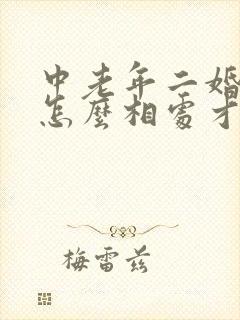 中老年二婚
怎麼相處才
梅雷兹